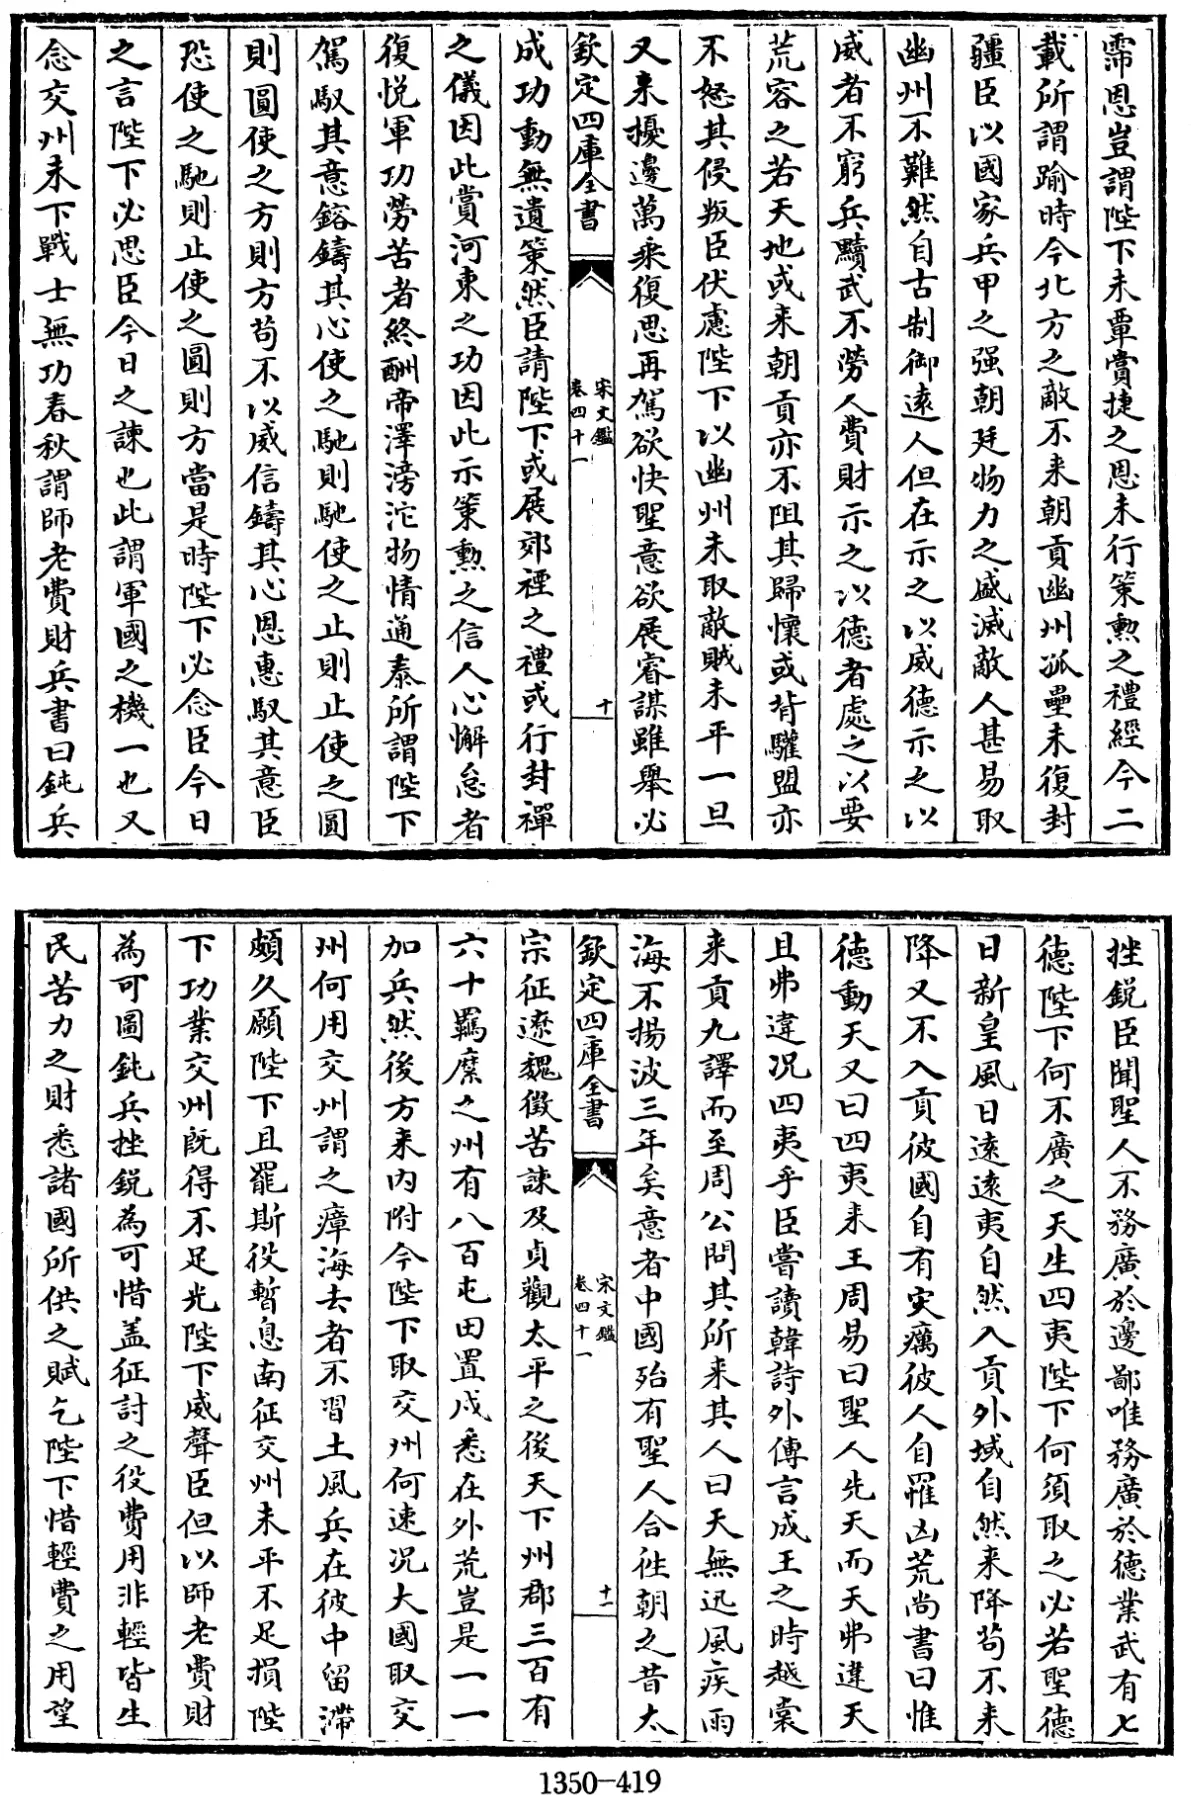 霈恩豈謂陛下未覃賞捷之恩未行策勲之禮經今二
載所謂踰時今北方之敵不来朝貢幽州孤壘未復封
疆臣以國家兵甲之强朝廷物力之盛滅敵人甚易取
幽州不難然自古制御逺人但在示之以威德示之以
威者不窮兵黷武不勞人費財示之以德者處之以要
荒容之若天地或来朝貢亦不阻其歸懷或背驩盟亦
不怒其侵叛臣伏慮陛下以幽州未取敵賊未平一旦
又来擾邊萬乘復思再駕欲快聖意欲展睿謀雖舉必
欽定四庫全書 宋文鑑 卷四十一 十
成功動無遺策然臣請陛下或展郊禋之禮或行封禪
之儀因此賞河東之功因此示策勲之信人心懈怠者
復悦軍功勞苦者終酬帝澤滂沱物情通泰所謂陛下
駕馭其意鎔鑄其心使之馳則馳使之止則止使之圓
則圓使之方則方苟不以威信鑄其心恩惠馭其意臣
恐使之馳則止使之圓則方當是時陛下必念臣今日
之言陛下必思臣今日之諫也此謂軍國之機一也又
念交州未下戰士無功春秋謂師老費財兵書曰鈍兵
挫鋭臣聞聖人不務廣於邊鄙唯務廣於德業武有七
德陛下何不廣之天生四夷陛下何須取之必若聖德
日新皇風日逺逺夷自然入貢外域自然来降苟不来
降又不入貢彼國自有灾癘彼人自罹凶荒尚書曰惟
德動天又曰四夷来王周易曰聖人先天而天弗違天
且弗違况四夷乎臣嘗讀韓詩外傳言成王之時越裳
来貢九譯而至周公問其所来其人曰天無迅風疾雨
海不揚波三年矣意者中國殆有聖人合徃朝之昔太
欽定四庫全書 宋文鑑 卷四十一 十一
宗征遼魏徵苦諫及貞觀太平之後天下州郡三百有
六十羈縻之州有八百屯田置戍悉在外荒豈是一一
加兵然後方来内附今陛下取交州何速况大國取交
州何用交州謂之瘴海去者不習土風兵在彼中留滯
頗久願陛下且罷斯役暫息南征交州未平不足損陛
下功業交州旣得不足光陛下威聲臣但以師老費財
為可圖鈍兵挫鋭為可惜盖征討之役費用非輕皆生
民苦力之財悉諸國所供之賦乞陛下惜輕費之用望
1350-419